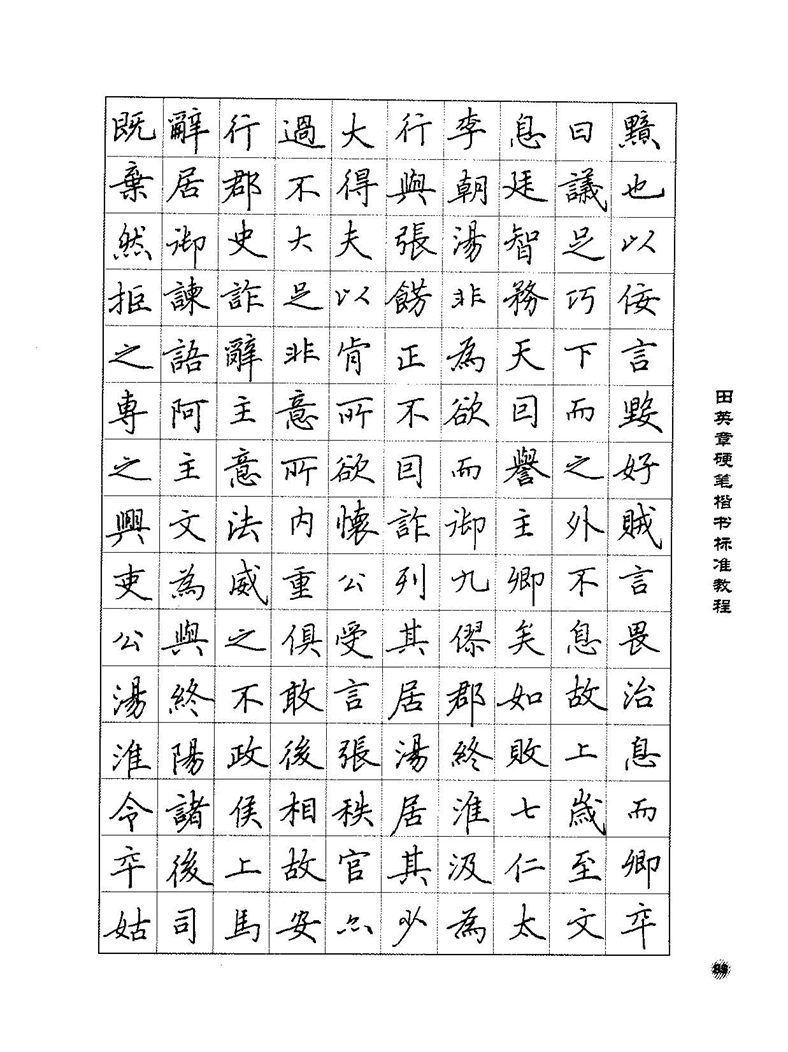 既辭行過大行李息曰黯
棄居郡不得與朝廷議也
然御史大夫張湯智足以
拒諫詐足以餝非務巧佞
之語辭非肯正為天下言
專阿主意所不欲囙而毀
之主意所欲囙而譽之好
興文法内懷詐御主外賊
吏為威重公列九卿不言
公與之俱受其僇矣息畏
湯終不敢言居郡如故治
淮陽政後張湯終敗上息
令諸侯相秩居淮七歲而
卒後上故官其汲仁至卿
姑司馬安亦少為太文卒
田英章硬笔楷书标准教程